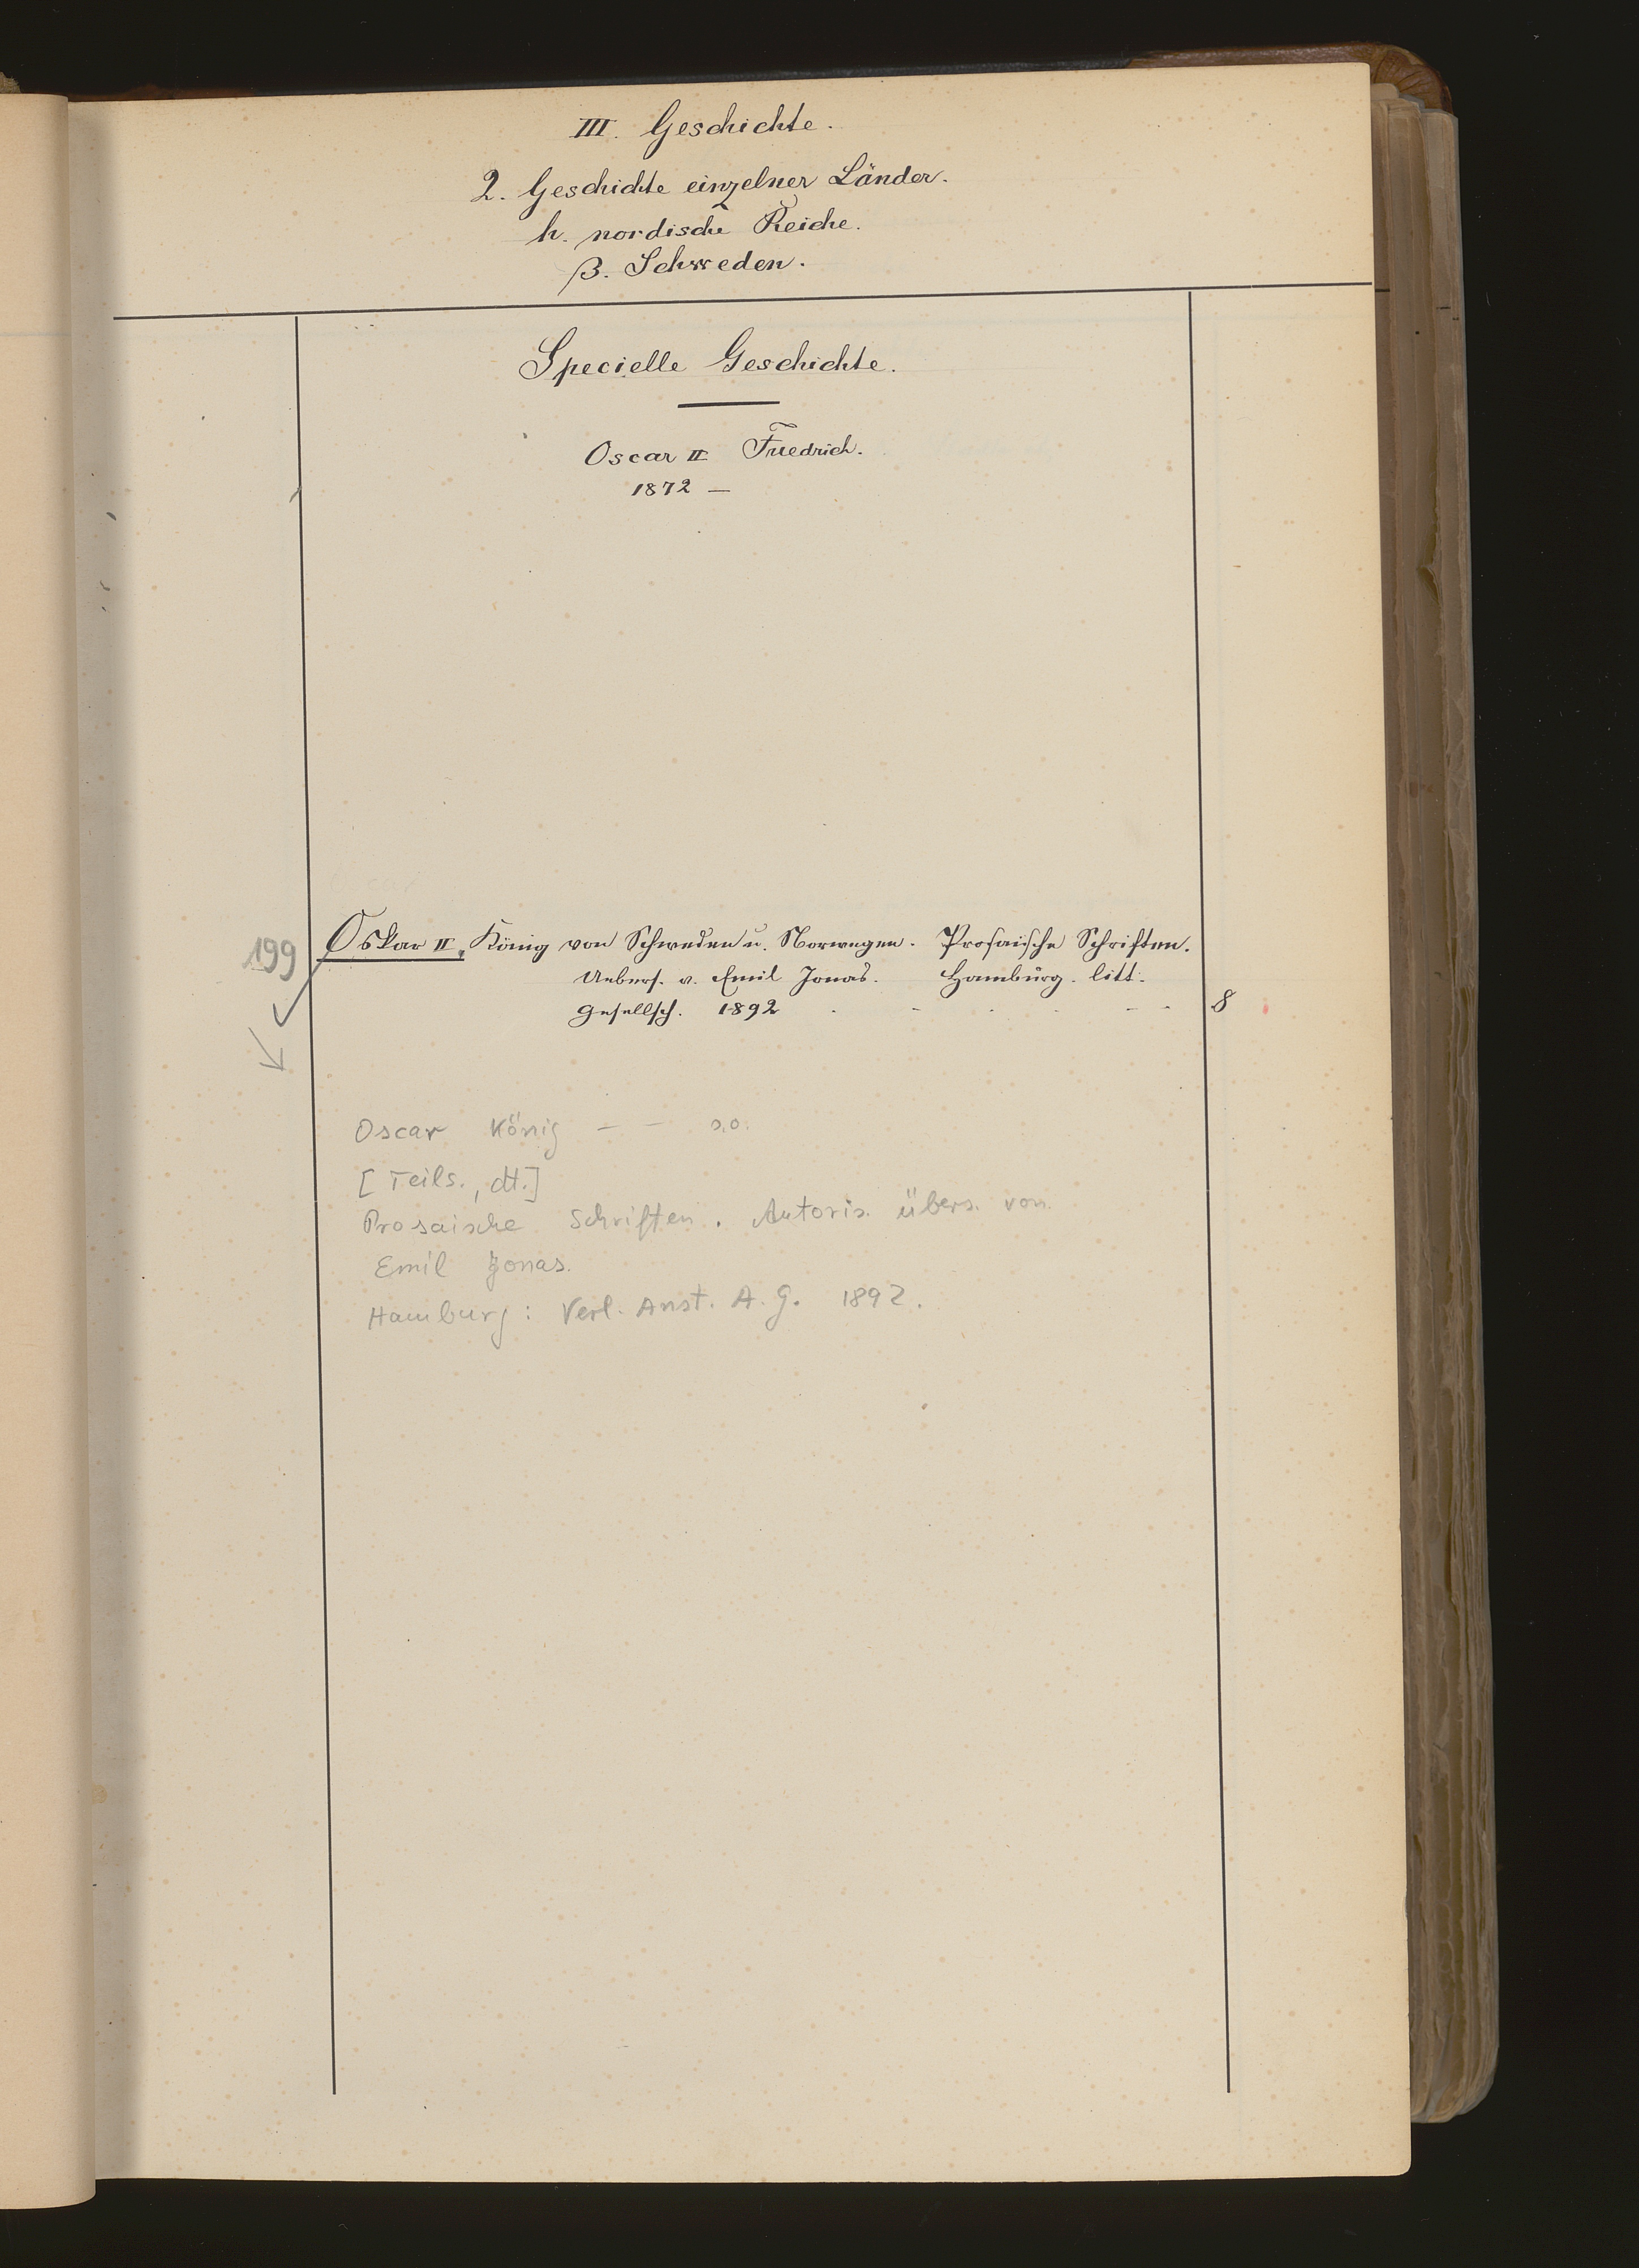 III. Geschichte.
2. Geschichte einzelner Länder.
h. nordische Reiche.
β. Schweden.
Specielle Geschichte.
Oscar II Friedrich.
1872 —
199
Oskar II, König von Schweden u. Norwegen. Prosaische Schriften.
Uebers. v. Emil Jonas. Hamburg. litt.
Gesellsch. 1892 8
Oscar König — — s.o.
[Teils., dt.]
Prosaische Schriften. Autoris. übers. von
Emil Jonas.
Hamburg: Verl. Anst. A.G. 1892.